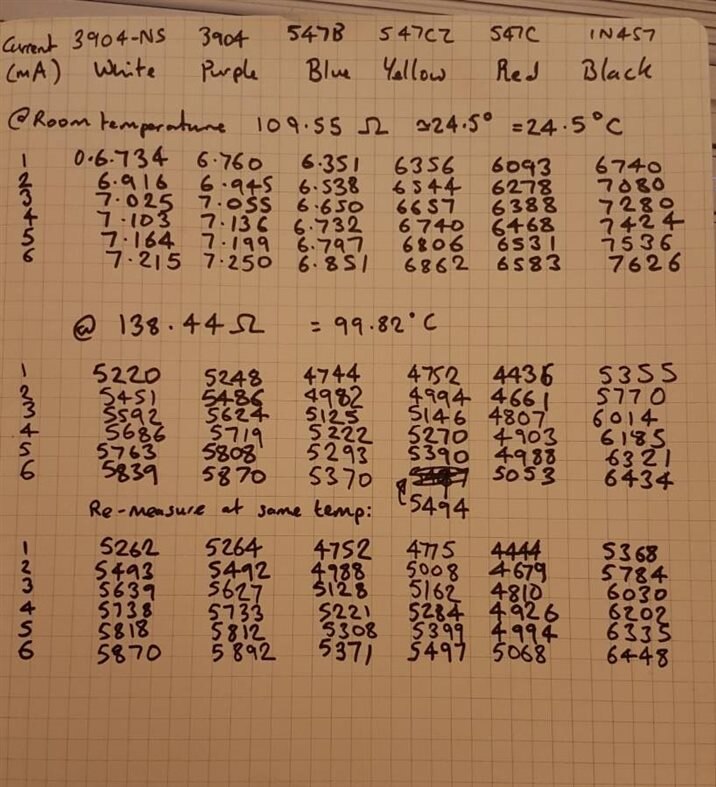 Current 3904-NS 3904 547B 547CZ 547C 1N457
(mA) White Purple Blue Yellow Red Black
@Room temperature 109.55 Ω ≃24.5° =24.5°C
1 0.6.734 6.760 6.351 6356 6093 6740
2 6.916 6.945 6.538 6544 6278 7080
3 7.025 7.055 6.650 6657 6388 7280
4 7.103 7.136 6.732 6740 6468 7424
5 7.164 7.199 6.797 6806 6531 7536
6 7.215 7.250 6.851 6862 6583 7626
@ 138.44Ω = 99.82°C
1 5220 5248 4744 4752 4436 5355
2 5451 5486 4982 4994 4661 5770
3 5592 5624 5125 5146 4807 6014
4 5686 5719 5222 5270 4903 6185
5 5763 5808 5293 5390 4988 6321
6 5839 5870 5370 5053 6434
Re-measure at same temp: 5494
1 5262 5264 4752 4775 4444 5368
2 5493 5492 4988 5008 4679 5784
3 5639 5627 5128 5162 4810 6030
4 5738 5733 5221 5284 4926 6202
5 5818 5812 5308 5399 4994 6335
6 5870 5892 5371 5497 5068 6448